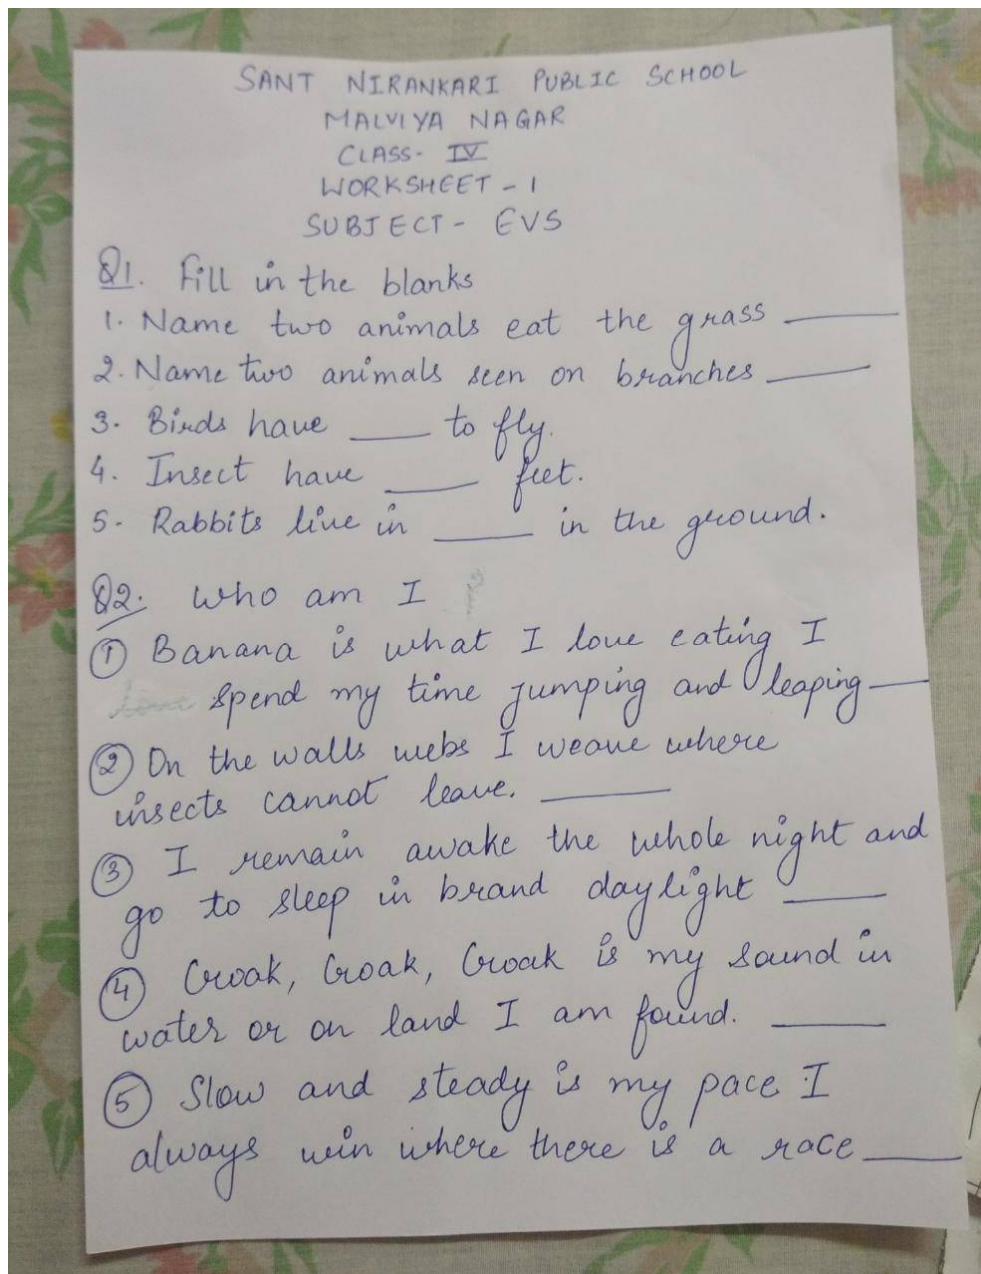 SANT NIRANKARI PUBLIC SCHOOL
MALVIYA NAGAR
CLASS- IV
WORKSHEET - 1
SUBJECT - EVS
Q1. Fill in the blanks
1. Name two animals eat the grass ____
2. Name two animals seen on branches ____
3. Birds have ____ to fly.
4. Insect have ____ feet.
5. Rabbits live in ____ in the ground.
Q2. Who am I
① Banana is what I love eating I
spend my time jumping and leaping ____
② On the walls webs I weave where
insects cannot leave. ____
③ I remain awake the whole night and
go to sleep in brand daylight ____
④ Croak, Croak, Croak is my sound in
water or on land I am found. ____
⑤ Slow and steady is my pace I
always win where there is a race ____